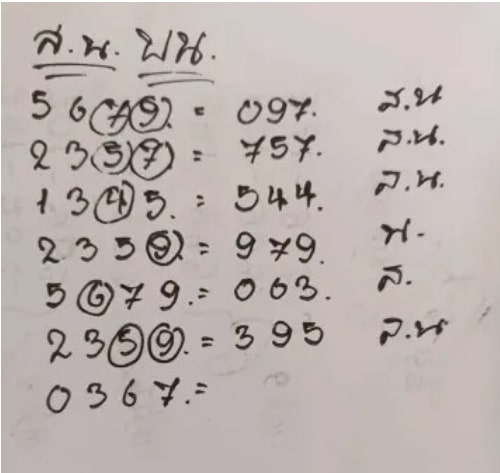 ส.น. บน.
5679. = 097. ส.น
2357) = 757. ส.น.
1345. = 544. ส.น.
2359. = 979. น.
5679. = 063. ส.
2359. = 395 ส.น
0367. =